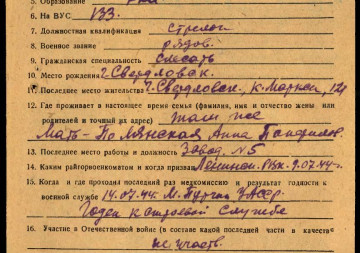 5. Образование
6. На ВУС 133.
7. Должностная квалификация стрелок
8. Военное звание рядов.
9. Гражданская специальность слесарь
10. Место рождения г. Свердловск.
11. Последнее место жительства г. Свердловск, К. Маркса, 121
12. Где проживает в настоящее время семья (фамилия, имя и отчество жены или
родителей и точный их адрес) там же
Мать - Полянская Анна
13. Последнее место работы и должность Завод №5
14. Каким райгорвоенкоматом и когда призван Ленинск. РВК. 9.07.44г.
15. Когда и где проходил последний раз медкомиссию и результат годности к
военной службе 14.07.44г.
Годен к строевой службе
16. Участие в Отечественной войне (в составе какой последней части в качеств
не участв.